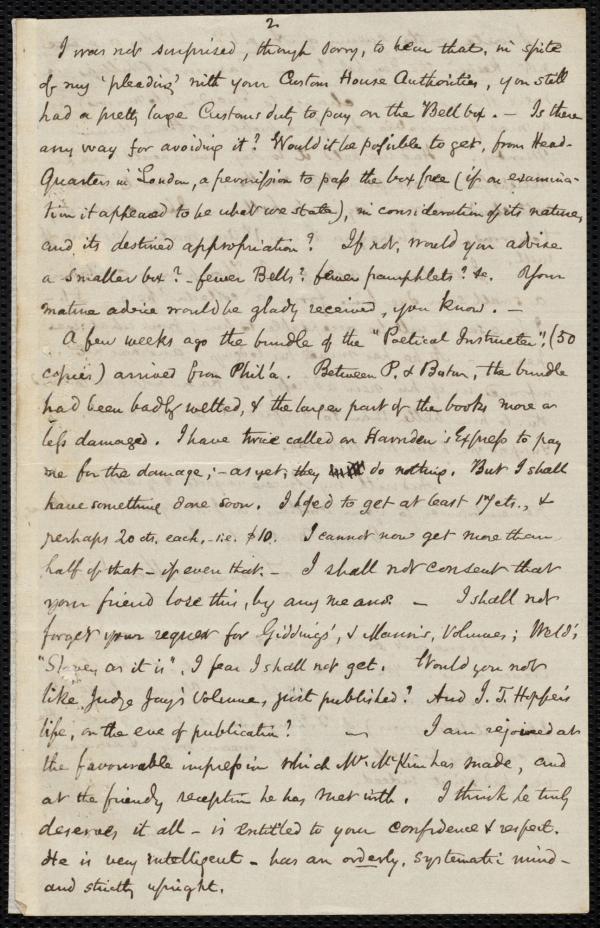 2
I was not surprised, though sorry, to hear that, in spite
of my 'pleading' with your Custom House Authorities, you still
had a pretty large Customs duty to pay on the Bell box. – Is there
any way for avoiding it? Would it be possible to get, from Head-
Quarters in London, a permission to pass the box free (if on examina-
tion it appeared to be what we state), in consideration of its nature,
and its destined appropriation? If not, would you advise
a smaller box? – fewer Bells? fewer pamphlets? &c. Your
mature advice would be gladly received, you know. –
A few weeks ago the bundle of the "Poetical Instructer", (50
copies) arrived from Phil'a. Between P. & Boston, the bundle
had been badly wetted, & the larger part of the books more or
less damaged. I have twice called on Harnden's Express to pay
me for the damage; – as yet, they do nothing. But I shall
have something done soon. I hoped to get at least 17 cts., &
perhaps 20 cts. each, – i.e. $10. I cannot now get more than
half of that – if even that. – I shall not consent that
your friend lose this, by any means. – I shall not
forget your request for Giddings', & Mann's, Volumes; Weld's
"Slavery as it is", I fear I shall not get. Would you not
like Judge Jay's volumes, just published? And I. T. Hopper's
life, on the eve of publication? — I am rejoiced at
the favourable impression which Mr. McKim has made, and
at the friendly reception he has met with. I think he truly
deserves it all – is entitled to your confidence & respect.
He is very intelligent – has an orderly, systematic mind –
and strictly upright.